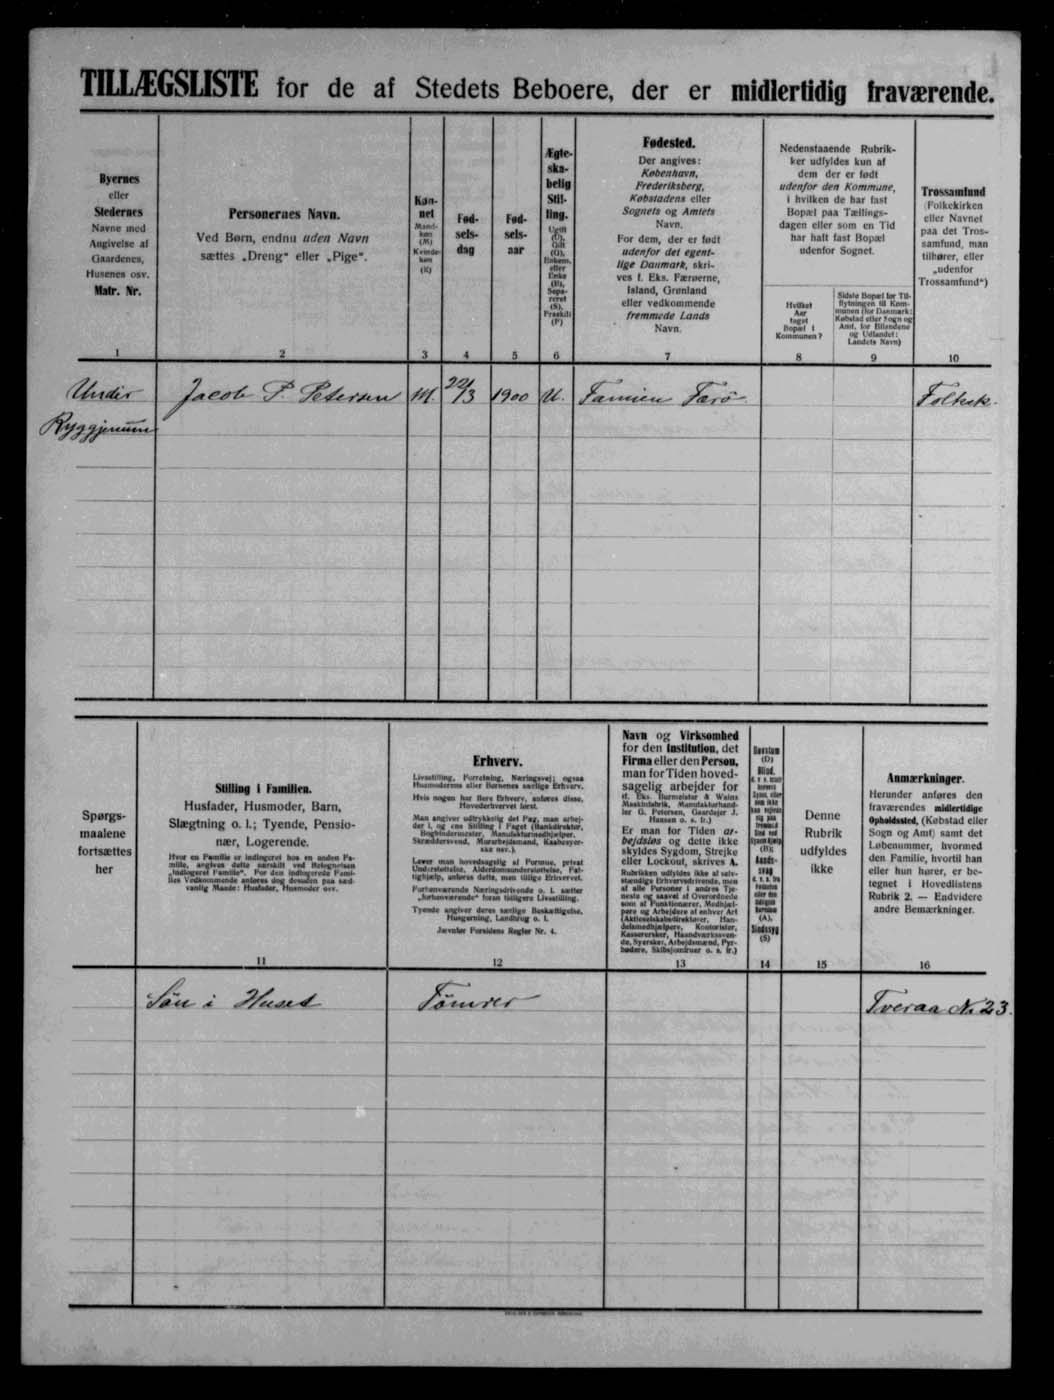 TILLÆGSLISTE for de af Stedets Beboere, der er midlertidig fraværende.
Byernes
eller
Stedernes
Navne med
Angivelse af
Gaardenes,
Husenes osv.
Matr. Nr.
1
Personernes Navn.
Ved Børn, endnu uden Navn
sættes „Dreng“ eller „Pige“.
2
Køn-
net
Mand-
køn
(M)
Kvinde-
køn
(K)
3
Fød-
sels-
dag
4
Fød-
sels-
aar
5
Ægte-
ska-
belig
Stil-
ling.
Ugift
(U),
Gift
(G),
Enkem.
eller
Enke
(E),
Sepa-
reret
(S),
Fraskilt
(F)
6
Fødested.
Der angives:
København,
Frederiksberg,
Købstadens eller
Sognets og Amtets
Navn.
For dem, der er født
udenfor det egent-
lige Danmark, skri-
ves f. Eks. Færøerne,
Island, Grønland
eller vedkommende
fremmede Lands
Navn.
7
Nedenstaaende Rubrik-
ker udfyldes kun af
dem der er født
udenfor den Kommune,
i hvilken de har fast
Bopæl paa Tællings-
dagen eller som en Tid
har haft fast Bopæl
udenfor Sognet.
Hvilket
Aar
taget
Bopæl i
Kommunen?
8
Sidste Bopæl før Til-
flytningen til Kom-
munen (for Danmark:
Købstad eller Sogn og
Amt, for Bilandene
og Udlandet:
Landets Navn)
9
Trossamfund
(Folkekirken
eller Navnet
paa det Tros-
samfund, man
tilhører, eller
„udenfor
Trossamfund“)
10
Under Jacob P. Petersen M. 22/3 1900 U. Famien Færø Folkek.
Ryggjenum
Spørgs-
maalene
fortsættes
her
Stilling i Familien.
Husfader, Husmoder, Barn,
Slægtning o. l.; Tyende, Pensio-
nær, Logerende.
Hvor en Familie er indlogeret hos en anden Fa-
milie, angives dette særskilt ved Betegnelsen
„Indlogeret Familie“. For den indlogerede Fami-
lies Vedkommende anføres dog desuden paa sæd-
vanlig Maade: Husfader, Husmoder osv.
11
Erhverv.
Livsstilling, Forretning, Næringsvej; ogsaa
Husmoderens eller Børnenes særlige Erhverv.
Hvis nogen har flere Erhverv, anføres disse,
Hovederhvervet først.
Man angiver udtrykkelig det Fag, man arbej-
der i, og ens Stilling i Faget (Bankdirektør,
Bogbindermester, Manufakturmedhjælper,
Skræddersvend, Murarbejdsmand, Kaabesyer-
ske osv.).
Lever man hovedsagelig af Formue, privat
Understøttelse, Alderdomsunderstøttelse, Fat-
tighjælp, anføres dette, men tillige Erhvervet.
Forhenværende Næringsdrivende o. l. sætter
„forhenværende“ foran tidligere Livsstilling.
Tyende angiver deres særlige Beskæftigelse,
Husgerning, Landbrug o. l.
Jævnfør Forsidens Regler Nr. 4.
12
Navn og Virksomhed
for den Institution, det
Firma eller den Person,
man for Tiden hoved-
sagelig arbejder for
(f. Eks. Burmeister & Wains
Maskinfabrik, Manufakturhand-
ler G. Petersen, Gaardejer J.
Hansen o. s. fr.)
Er man for Tiden ar-
bejdsløs og dette ikke
skyldes Sygdom, Strejke
eller Lockout, skrives A.
Rubrikken udfyldes ikke af selv-
stændige Erhvervsdrivende, men
af alle Personer i andres Tje-
neste og saavel af Overordnede
som af Funktionærer, Medhjæl-
pere og Arbejdere af enhver Art
(Aktieselskabsdirektører, Han-
delsmedhjælpere, Kontorister,
Kasserersker, Haandværkssven-
de, Syersker, Arbejdsmænd, Fyr-
bødere, Skibsjomfruer o. s. fr.)
13
Døvstum
(D)
Blind,
14
Denne
Rubrik
udfyldes
ikke
15
Anmærkninger.
Herunder anføres den
fraværendes midlertidige
Opholdssted, (Købstad eller
Sogn og Amt) samt det
Løbenummer, hvormed
den Familie, hvortil han
eller hun hører, er be-
tegnet i Hovedlistens
Rubrik 2. — Endvidere
andre Bemærkninger.
16
Søn i Huset Tømrer Tveraa Nr 23.